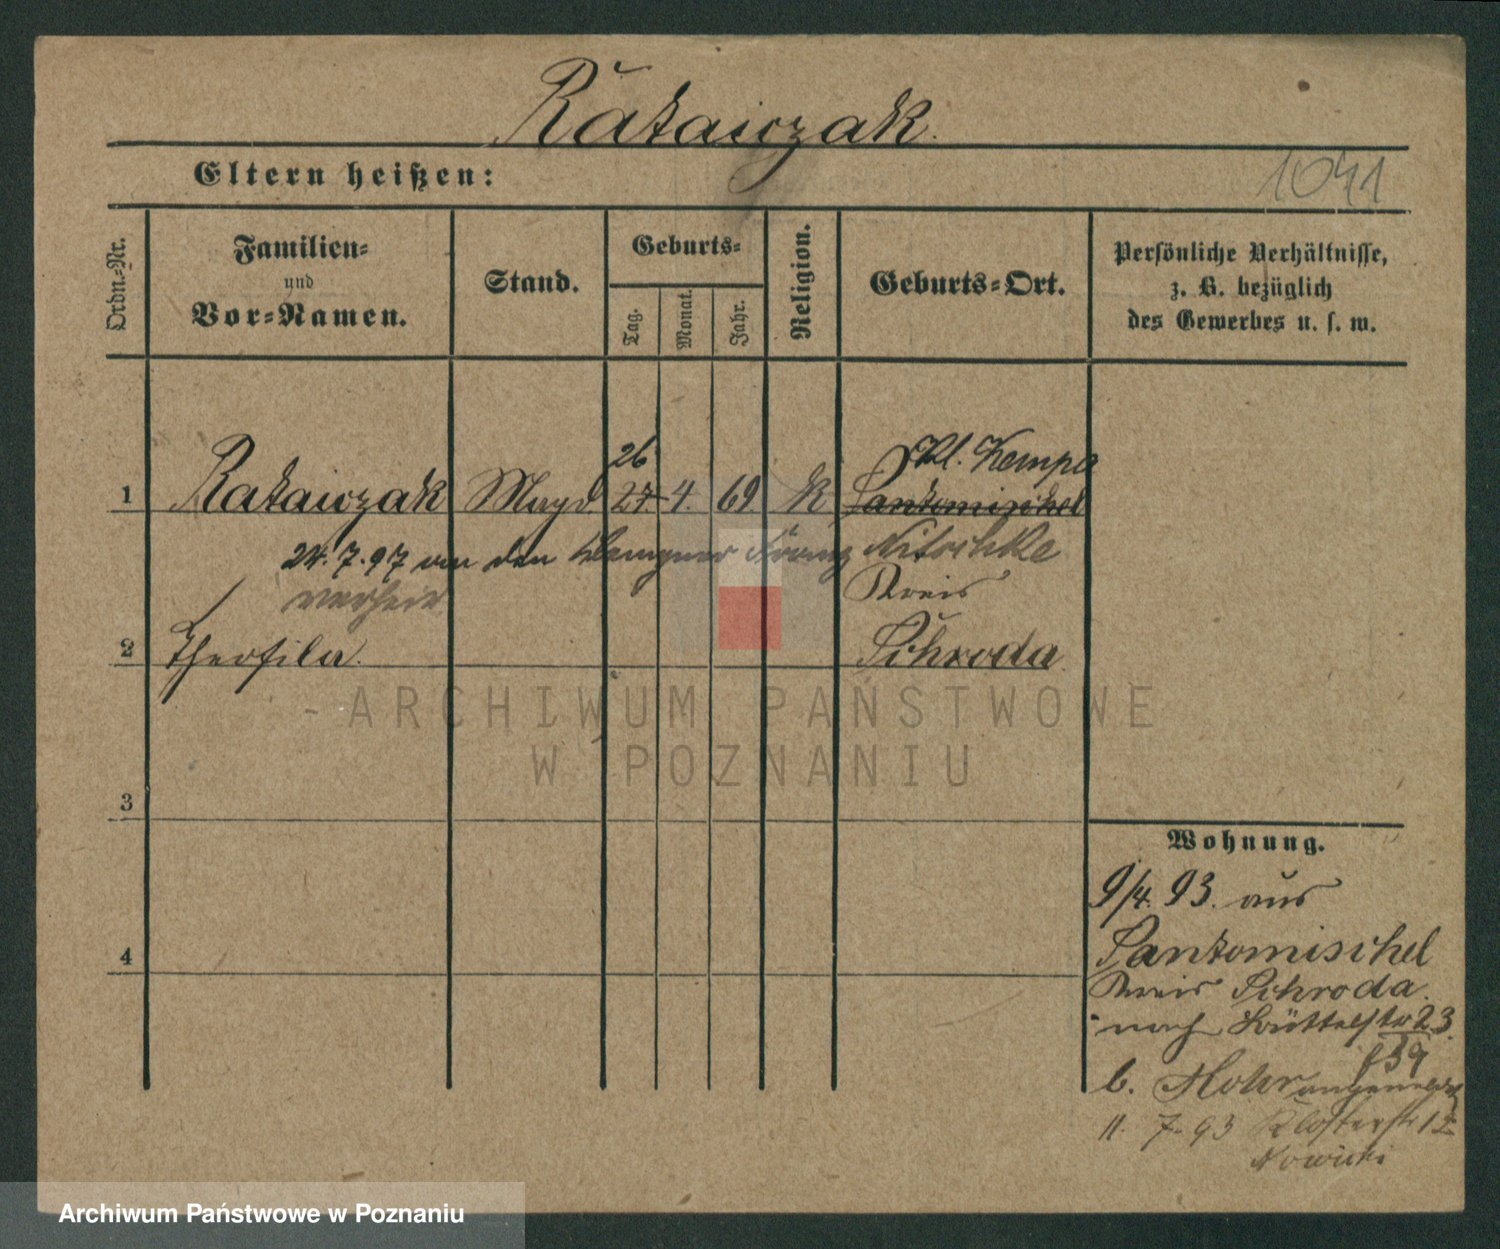 Ratajczak.
Eltern heißen:
1041
Ordn.-Nr.
Familien-
und
Vor-Namen.
Stand.
Geburts-
Tag.
Monat.
Jahr.
Religion.
Geburts-Ort.
Persönliche Verhältnisse,
z. B. bezüglich
des Gewerbes u. s. w.
26
Kl. Kempa
1 Ratajczak Magd. 27. 4. 69 K Santomischel
24.7.97 an den Franz Nitschke
verheir
Kreis
2 Theofila. Schroda
- ARCHIWUM PAŃSTWOWE
W POZNANIU
3
4
Wohnung.
9/4. 93. aus
Santomischel
Kreis Schroda.
nach Büttelstr 23
f 39
b. Mohr angemeldet
11. 7. 93 Klosterstr 12
Nowicki
Archiwum Państwowe w Poznaniu